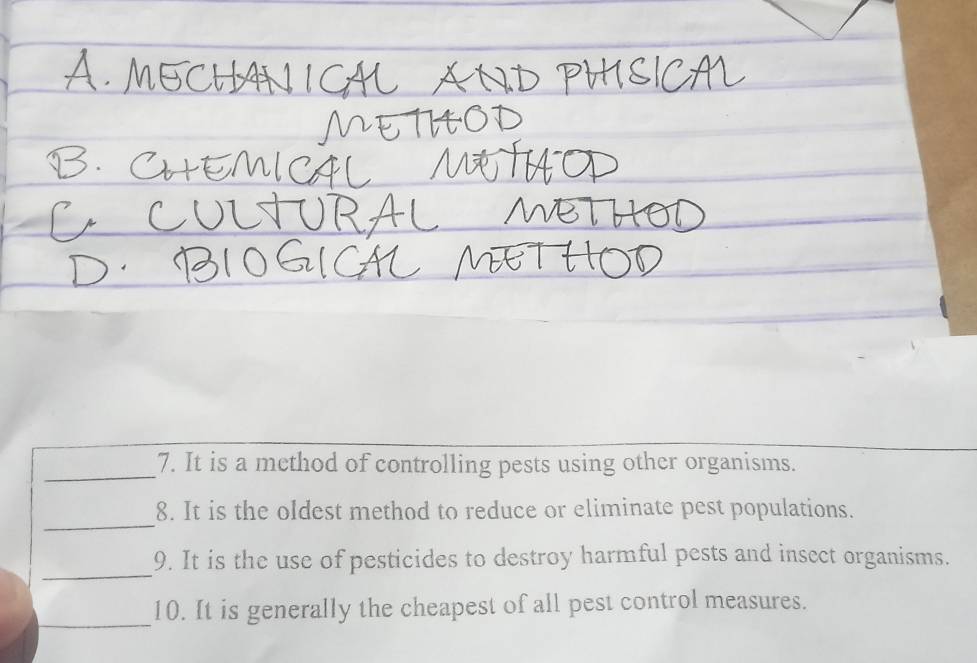 A. MECHANICAL AND PHISICAL
METHOD
B. CHEMICAL METHOD
C. CULTURAL METHOD
D. BIOGICAL METHOD
7. It is a method of controlling pests using other organisms.
8. It is the oldest method to reduce or eliminate pest populations.
9. It is the use of pesticides to destroy harmful pests and insect organisms.
10. It is generally the cheapest of all pest control measures.